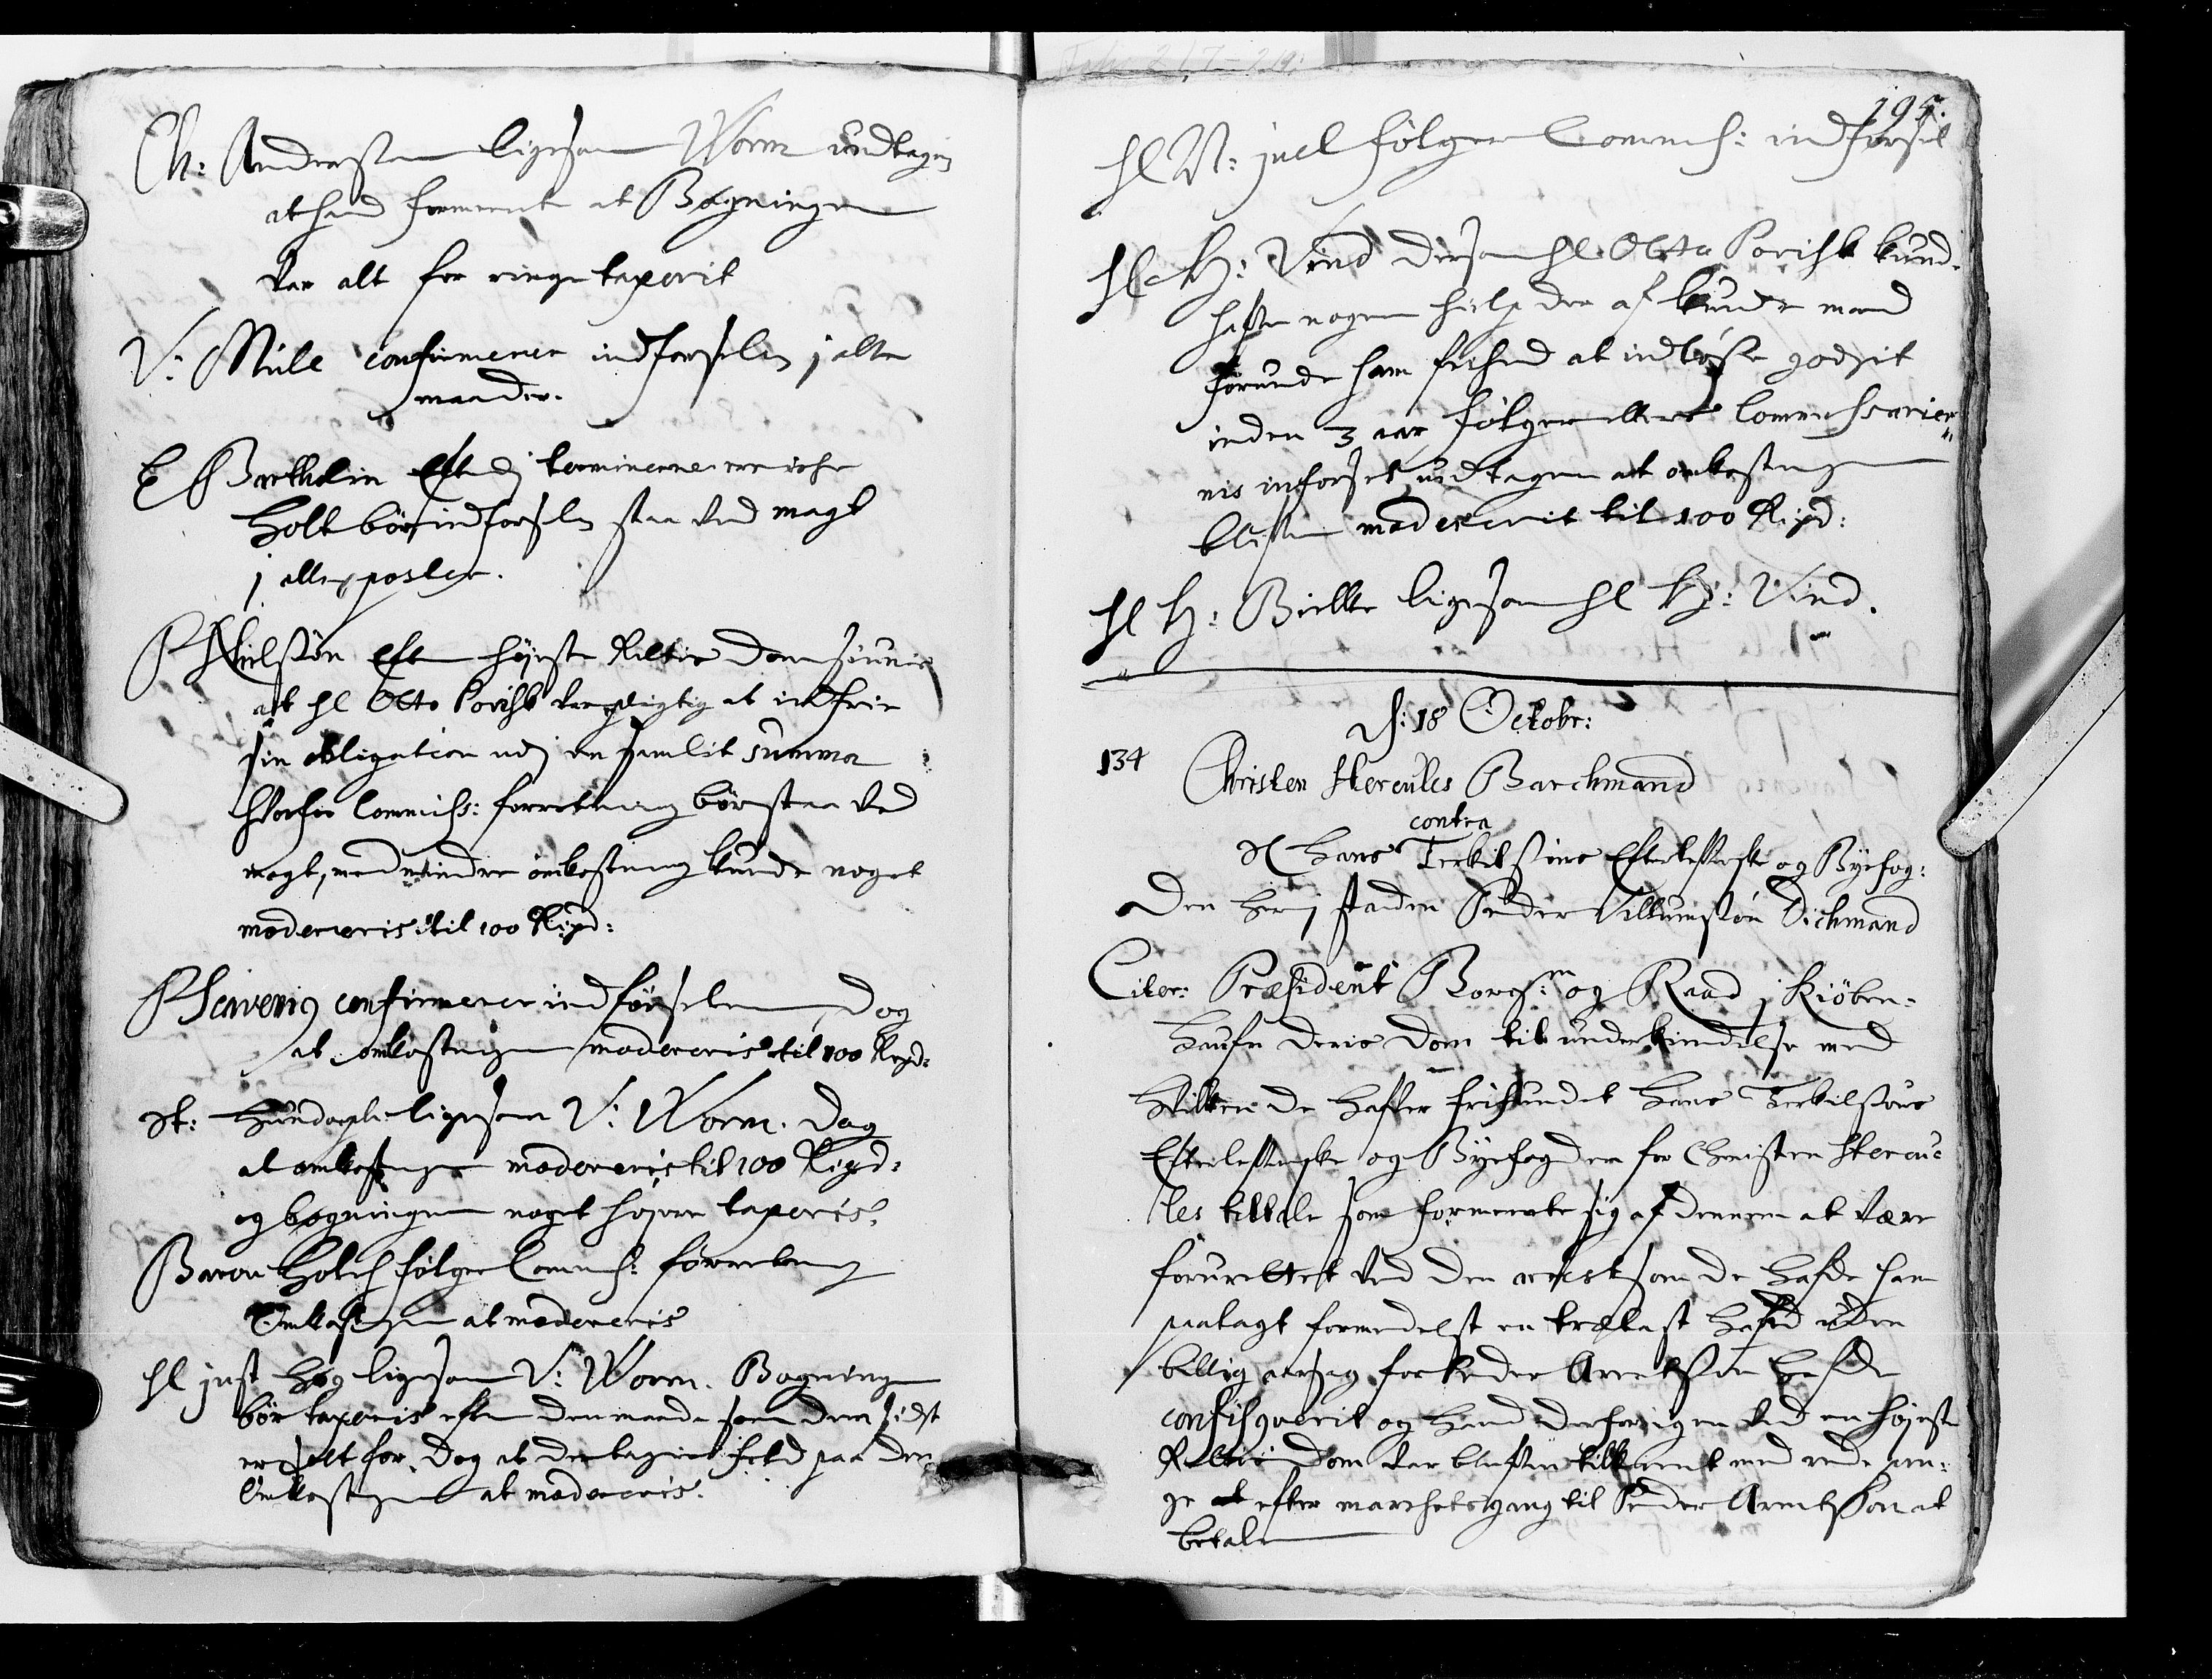 Ch: Andersen ligesom Worm undtagen
at hand formeente at Bøgningen
var alt for ringe taxerit
V: Mule confirmerer indførselen j alle
maader.
E Bartholin Efterdj terminerne ere icke
Holt bør indførselen staa ved magt
j alle poster.
P Nielssøn Efter højeste Rettis dom siunis
at hl Otto Porisk var pligtig at indfrie
sin obligation udj en samlit summa
hvorfor Commiss: forretning bør staa ved
magt, med mindre ombkostning kunde noget
modereris til 100 Rixd:
P Scavenius confirmerer indførselen, dog
at omkostningen modereris til 100 Rixd:
St: Hundorph ligesom V: Worm. dog
at omkostningen modereris til 100 Rixd:
og bøgningen noget højere taxeris.
Baron Holch følger Commiss: forretning
Omkostningen at modereris
hl just Høg ligesom V: Worm. Bøgningen
bør taxeris efter den maade som dem sidst
er solt for. Dog at der tagis feed paa den
Omkostningen at modereris.
195.
hl N: juel følger Commiss: indførsel
hl H: Vind dersom hl Otto Porisk kunde
hafve nogen hielp der af kunde mand
forunde ham frihed at indløsse godsit
inden 3 aar følger ellers Commissarier„
nis inførsel undtagen at onkostningen
blifver modererit til 100 Rixd:
hl H: Bielke ligesom hl H: Vind.
D: 18 Octobr:
134
Christen Hercules Barchmand
contra
S Hans Terkilssøns Efterlefverske og Byefog:
den her j staden Peder Villumssøn Dichmand
Citer: Præsident Borgem: og Raad j Kiøben-
haufn deris dom til underkiendelse med
hvilken de haffver frifundet Hans Terkilssøns
Efterlefverske og Byefogden for Christen Hercu-
les tiltale som formeente sig af dennem at være
forurettet ved den arrest som de hafde ham
paalagt formedelst en trælast hafd uden
billig aarsag for Peder Arentssøn hafde
confisquerit og hand derfor igen ved en højeste
Rettis dom var blefven tilkient med rede pen-
ge at efter marchetsgang til Peder Arentsson at
betale